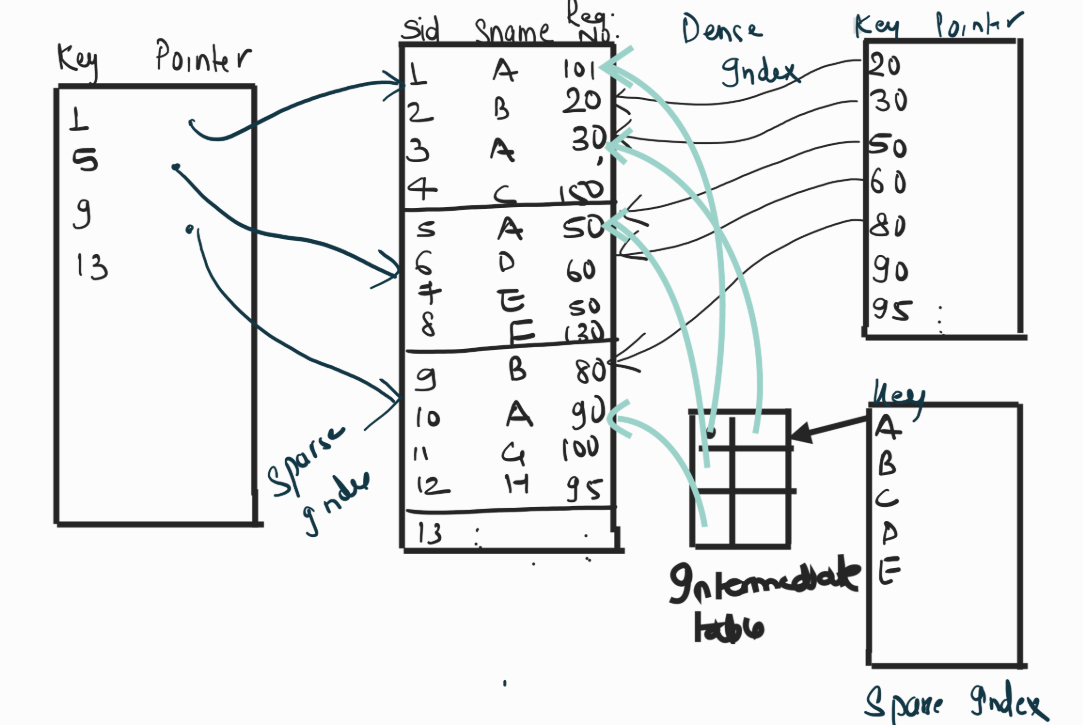 Key Pointer
1
5
9
13
Sparse
Index
Sid Sname Reg.
No.
1 A 101
2 B 20
3 A 30
4 C 150
5 A 50
6 D 60
7 E 50
8 F 130
9 B 80
10 A 90
11 G 100
12 H 95
13 : .
Dense
Index
Key Pointer
20
30
50
60
80
90
95 :
Intermediate
table
Key
A
B
C
D
E
Spare Index